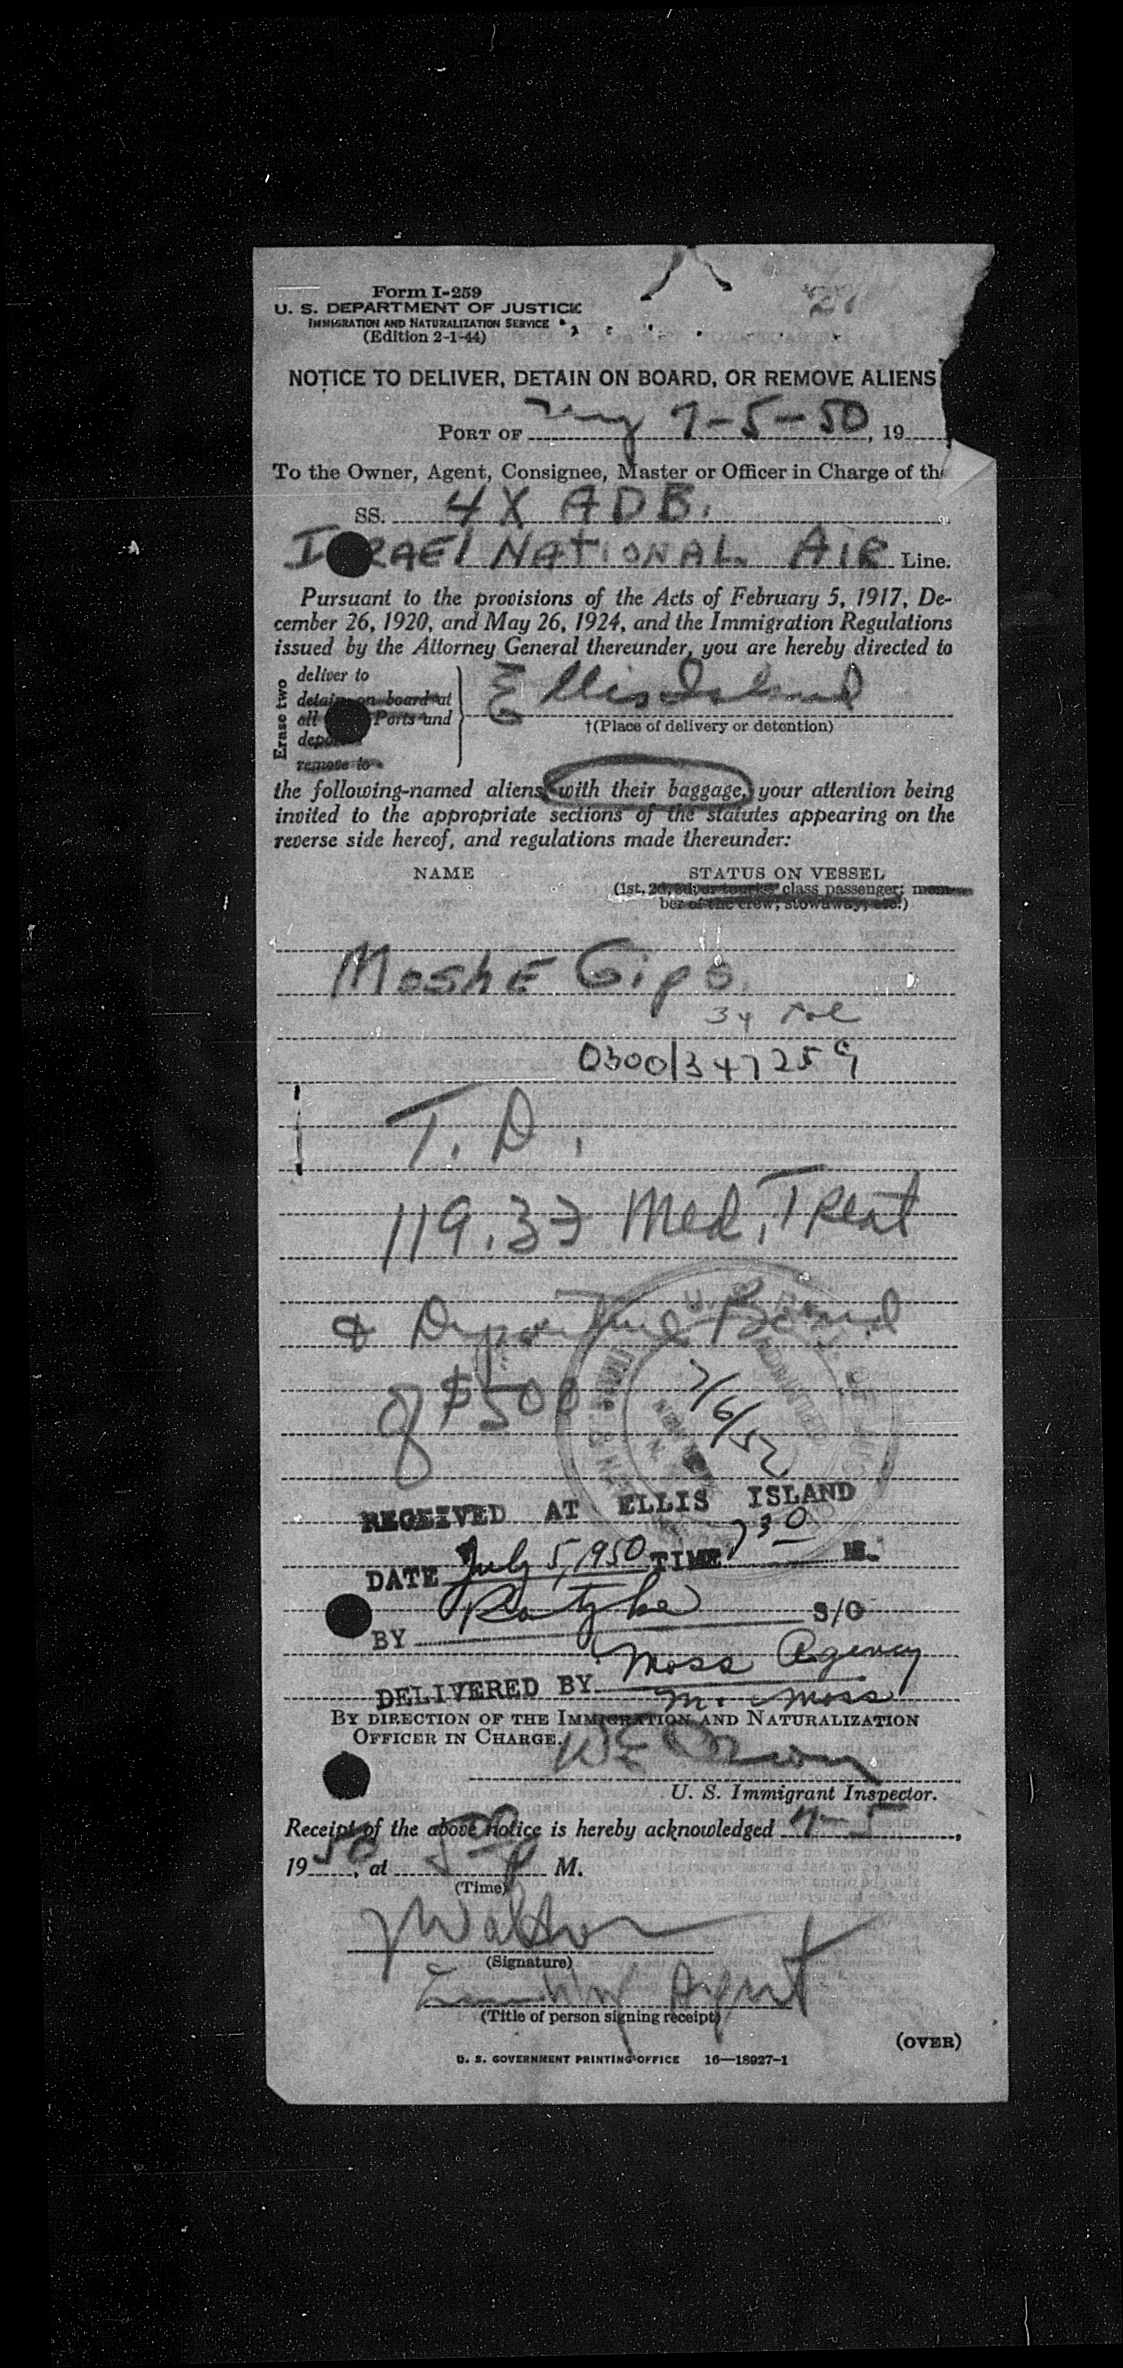 Form I-259
U. S. DEPARTMENT OF JUSTICE
IMMIGRATION AND NATURALIZATION SERVICE
(Edition 2-1-44)
NOTICE TO DELIVER, DETAIN ON BOARD, OR REMOVE ALIENS
PORT OF 7-5-50, 19
To the Owner, Agent, Consignee, Master or Officer in Charge of the
SS. 4X ADB.
ISRAEL NATIONAL AIR Line.
Pursuant to the provisions of the Acts of February 5, 1917, De-
cember 26, 1920, and May 26, 1924, and the Immigration Regulations
issued by the Attorney General thereunder, you are hereby directed to
Erase two
deliver to
detain on board at
all Ports and
remove to
Ellis Island
†(Place of delivery or detention)
the following-named aliens, with their baggage, your attention being
invited to the appropriate sections of the statutes appearing on the
reverse side hereof, and regulations made thereunder:
NAME STATUS ON VESSEL
(1st, 2d, 3d, or tourist class passenger; mem-
ber of the crew; stowaway, etc.)
Moshe Gips
34
0300/347259
T. D.
119.33 Med. Treat
& Departure Bond
of $500
7/6/52
RECEIVED AT ELLIS ISLAND
DATE July 5, 1950 TIME 7 30 M.
BY S/O
DELIVERED BY Moss Agency
M. Moss
BY DIRECTION OF THE IMMIGRATION AND NATURALIZATION
OFFICER IN CHARGE.
U. S. Immigrant Inspector.
Receipt of the above notice is hereby acknowledged 7-5,
19 50, at M.
(Time)
(Signature)
Agent
(Title of person signing receipt)
(OVER)
U. S. GOVERNMENT PRINTING OFFICE 16—18927-1